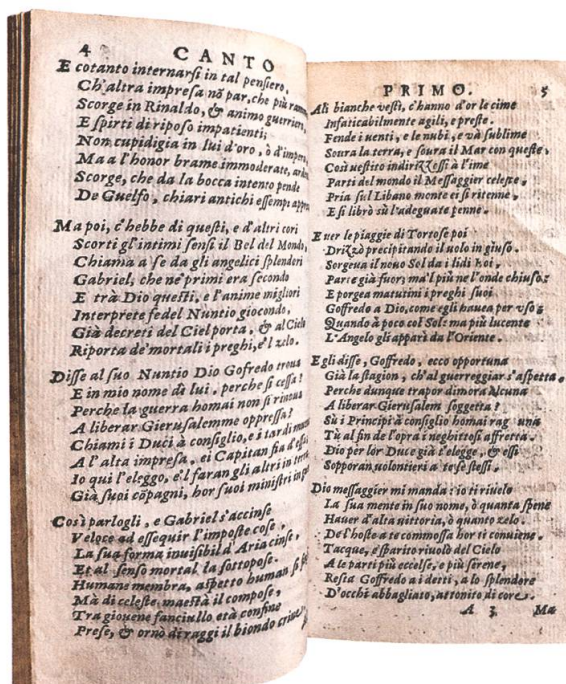 4 CANTO
E cotanto internarſi in tal penſiero,
Ch'altra impreſa nõ par, che più
Scorge in Rinaldo, & animo guerriero,
E ſpirti di ripoſo impatienti;
Non cupidigia in lui d'oro, ò d'impero,
Ma a l'honor brame immoderate,
Scorge, che da la bocca intento pende
De Guelfo, chiari antichi eſſempi
Ma poi, c'hebbe di queſti, e d'altri cori
Scorti gl'intimi ſenſi il Bel del Mondo,
Chiama a ſe da gli angelici ſplendori
Gabriel, che ne' primi era ſecondo
E trà Dio queſti, e l'anime migliori
Interprete fedel Nuntio giocondo,
Già decreti del Ciel porta, & al Cielo
Riporta de' mortali i preghi, e'l zelo.
Diſſe al ſuo Nuntio Dio Gofredo troua
E in mio nome dì lui, perche ſi ceſſa?
Perche la guerra homai non ſi rinoua
A liberar Gieruſalemme oppreſſa?
Chiami i Duci à conſiglio, e i tardi
A l'alta impreſa, ei Capitan fia d'eſſa
Io qui l'eleggo, e'l faran gli altri in terra
Già ſuoi cõpagni, hor ſuoi miniſtri in
Così parlogli, e Gabriel s'accinſe
Veloce ad eſſequir l'impoſte coſe,
La ſua forma inuiſibil d'Aria cinſe,
Et al ſenſo mortal la ſottopoſe.
Humane membra, aſpetto human ſi
Mà di celeſte maeſtà il compoſe,
Tra giouene fanciullo età confine
Preſe, & ornò di raggi il biondo crine.
PRIMO. 5
Ali bianche veſtì, c'hanno d'or le cime
Infaticabilmente agili, e preſte.
Fende i uenti, e le nubi, e và ſublime
Soura la terra, e ſoura il Mar con queſte,
Così ueſtito indirizzeſſi à l'ime
Parti del mondo il Meſſaggier celeſte,
Pria ſul Libano monte ei ſi ritenne,
E ſi librò sù l'adeguate penne.
E uer le piaggie di Tortoſe poi
Drizzò precipitando il uolo in giuſo.
Sorgeua il nouo Sol da i lidi hoi,
Parte già fuor; ma'l più ne l'onde chiuſo;
E porgea matutini i preghi ſuoi
Goffredo a Dio, come egli hauea per vſo;
Quando à poco col Sol; ma più lucente
L'Angelo gli apparì da l'Oriente.
Egli diſſe, Goffredo, ecco opportuna
Già la ſtagion, ch'al guerreggiar s'aſpetta.
Perche dunque trapor dimora alcuna
A liberar Gieruſalem ſoggetta?
Sù i Principi à conſiglio homai
Tù al fin de l'opra i neghittoſi affretta.
Dio per lor Duce già t'elegge, & eſſi
Sopporan uolontieri a te ſe ſteſſi.
Dio meſſaggier mi manda: io ti riuelo
La ſua mente in ſuo nome, ò quanta ſpene
Hauer d'alta uittoria, ò quanto zelo.
De l'hoſte a te commoſſa hor ti conuiene.
Tacque, e ſparito riuolò del Cielo
A le parti più eccelſe, e più ſerene,
Reſta Goffredo ai detti, a lo ſplendore
D'occhi abbagliato, attonito di core.
A 3 Ma